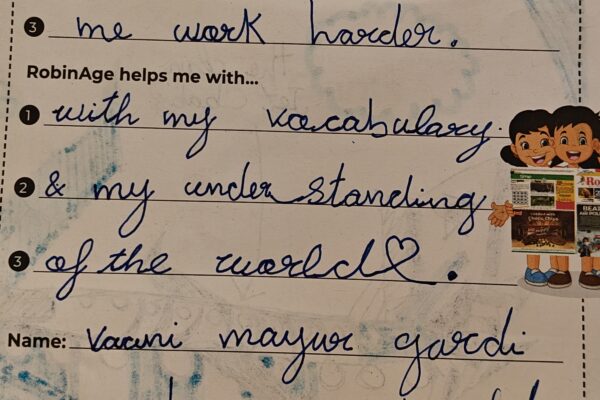 3 me work harder.
RobinAge helps me with...
1 with my vocabulary.
2 & my understanding
3 of the world♡.
Name: Vaani mayur gardi